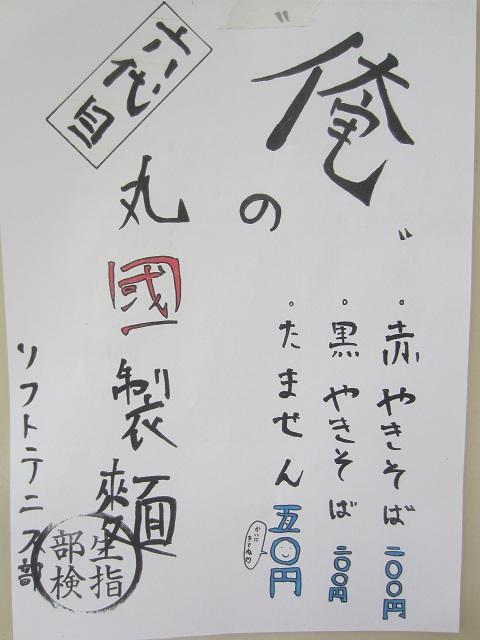 〃俺〃の
・赤やきそば 二〇〇円
・黒やきそば 二〇〇円
・たません 五〇円
かいにきてね
六代目
丸國製麺
ソフトテニス部
生指部検